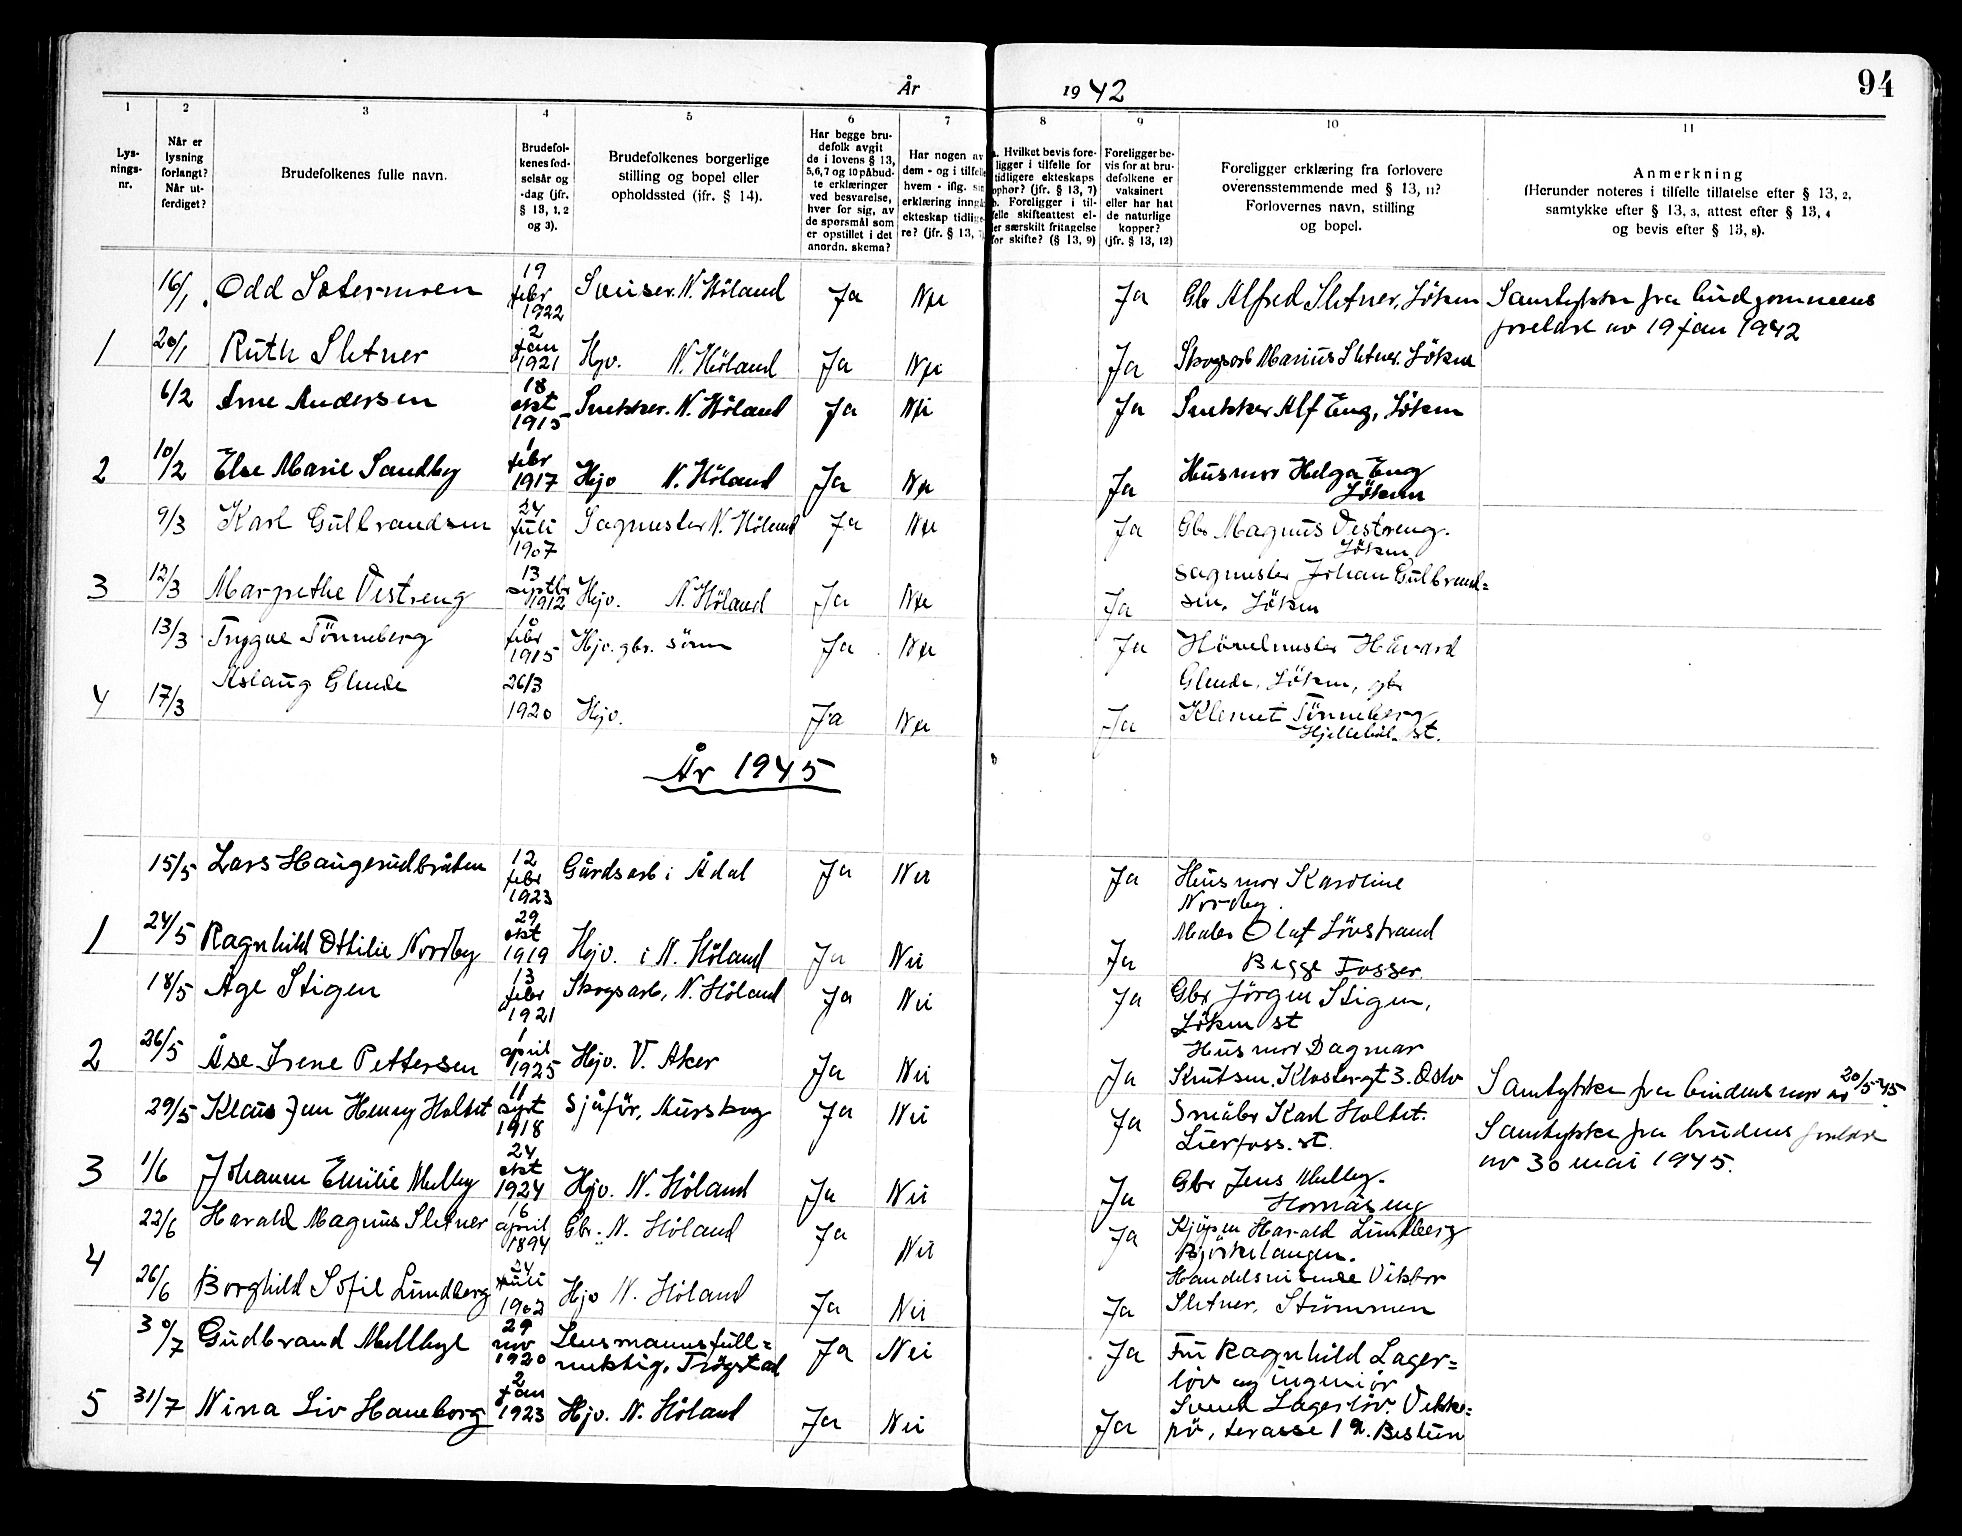 År 1942
94
1 2 3 4 5 6 7 8 9 10 11
Lys-
nings-
nr.
Når er
lysning
forlangt?
Når ut-
ferdiget?
Brudefolkenes fulle navn.
Brudefol-
kenes fød-
selsår og
-dag (jfr.
§ 13, 1, 2
og 3).
Brudefolkenes borgerlige
stilling og bopel eller
opholdssted (jfr. § 14).
Har begge bru-
defolk avgit
de i lovens § 13,
5,6,7 og 10 påbud-
te erklæringer
ved besvarelse,
hver for sig, av
de spørsmål som
er opstillet i det
anordn. skema?
Har nogen av
dem - og i tilfelle
hvem - iflg. sin
erklæring inngå
ekteskap tidlige-
re? (jfr. § 13, 7)
a. Hvilket bevis fore-
ligger i tilfelle for
tidligere ekteskaps
ophør? (jfr. § 13, 7)
b. Foreligger i til-
felle skifteattest el-
ler særskilt fritagelse
for skifte? (§ 13, 9)
Foreligger be-
vis for at bru-
defolkene er
vaksinert
eller har hat
de naturlige
kopper?
(jfr. § 13, 12)
Foreligger erklæring fra forlovere
overensstemmende med § 13, 11?
Forlovernes navn, stilling
og bopel.
Anmerkning
(Herunder noteres i tilfelle tillatelse efter § 13, 2,
samtykke efter § 13, 3, attest efter § 13, 4
og bevis efter § 13, 8).
16/1 Odd Sætermoen 19 febr 1922 N. Höland Ja Nei Ja Gbr Alfred Sletner, Löken Samtykke fra brudgommens
foreldre av 19 jan 1942
1 20/1 Ruth Sletner 2 jan 1921 Hjv. N. Höland Ja Nei Ja Skogsarb Marius Sletner. Löken
6/2 Arne Andersen 18 okt 1915 Snekker. N. Höland Ja Nei Ja Snekker Alf Eng, Löken
2 10/2 Else Marie Sandby 1 febr 1917 Hjv N. Höland Ja Nei Ja Husmor Helga Eng
Löken
9/3 Karl Gulbrandsen 24 juli 1907 Sagmester N. Höland Ja Nei Ja Gbr Magnus Vestreng.
Löken
3 12/3 Margrethe Vestreng 13 septbr 1912 Hjv. N. Höland Ja Nei Ja Sagmester Johan Gulbrand=
sen, Löken
13/3 Trygve Tönneberg 10 febr 1915 Hjv. gbr. sönn Ja Nei Ja Hövelmester Håvard
Glende, Löken, gbr
4 17/3 Aslaug Glende 26/3 1920 Hjv. Ja Nei Ja Klemet Tönneberg
Hjelleböl st.
År 1945
15/5 Lars Haugerudbråten 12 febr 1923 Gårdsarb i Ådal Ja Nei Ja Husmor Karoline
Nordby.
1 24/5 Ragnhild Othilie Nordby 29 okt 1919 Hjv. i N. Höland Ja Nei Ja Maler Olaf Lövstrand
Begge Fosser.
18/5 Åge Stigen 13 febr 1921 Skogsarb, N. Höland Ja Nei Ja Gbr Jörgen Stigen,
Löken st
2 26/5 Åse Irene Pettersen 1 april 1925 Hjv. V. Aker Ja Nei Ja Husmor Dagmar
Knutsen. Klostergt 3. Oslo Samtykke fra brudens mor av 20/5-45.
29/5 Klaus Jan Henry Holtet 11 sept 1918 Sjåför, Aurskog Ja Nei Ja Småbr Karl Holtet.
Lierfoss. st. Samtykke fra brudens foreldre
av 30 mai 1945.
3 1/6 Johanne Emilie Melleby 24 okt 1924 Hjv. N. Höland Ja Nei Ja Gbr Jens Melleby.
Hornåseng
22/6 Harald Magnus Sletner 16 april 1894 Gbr. N. Höland Ja Nei Ja Kjöpm Harald Lundberg
Björkelangen.
4 26/6 Borghild Sofie Lundberg 24 juli 1902 Hjv N. Höland Ja Nei Ja Handelsreisende Viktor
Sletner, Strömmen
30/7 Gudbrand Mellbye 29 nov 1920 Lensmannsfull=
mektig. Trögstad Ja Nei Ja Fru Ragnhild Lager=
löv og ingeniör
5 31/7 Nina Liv Haneborg 2 jan 1923 Hjv. N. Höland Ja Nei Ja Svend Lagerlöv. Vekke=
rö, terasse 1 Bestun